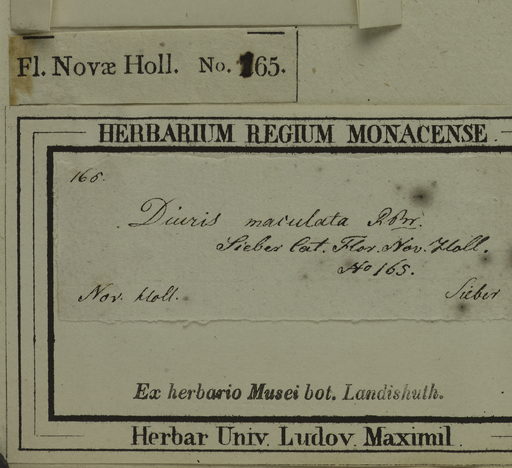 Fl. Novæ Holl. No. 165.
HERBARIUM REGIUM MONACENSE
165.
Diuris maculata RBr.
Sieber Cat. Flor. Nov. Holl.
No 165.
Nov. Holl. Sieber
Ex herbario Musei bot. Landishuth.
Herbar Univ. Ludov. Maximil